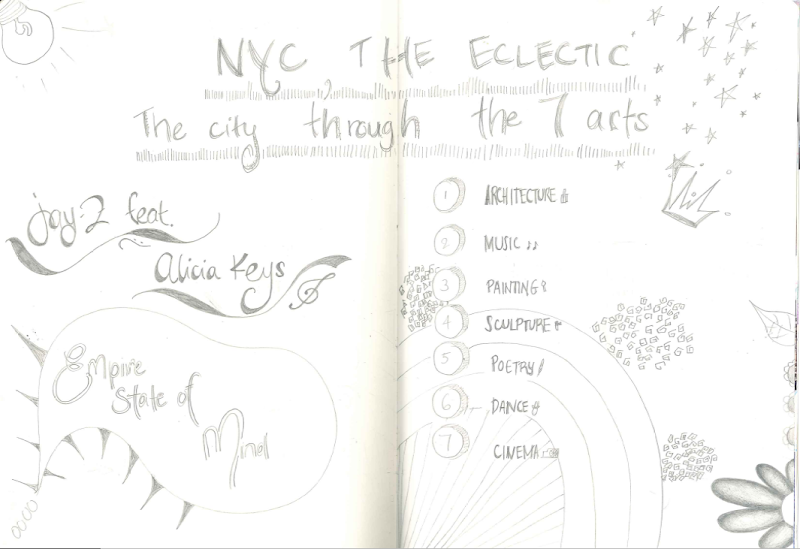 NYC, THE ECLECTIC
The city through the 7 arts
Jay-Z feat.
Alicia Keys
Empire
State of
Mind
1 ARCHITECTURE
2 MUSIC
3 PAINTING
4 SCULPTURE
5 POETRY
6 DANCE
7 CINEMA